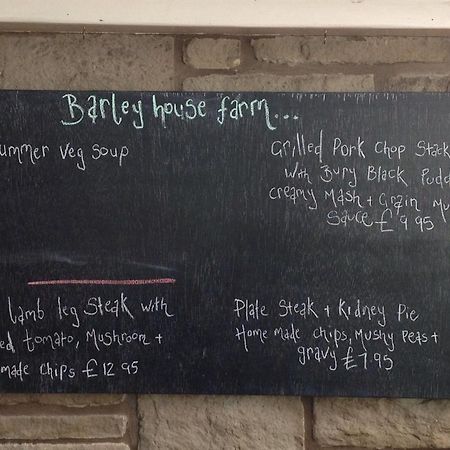 Barley house farm...
ummer veg soup
Grilled Pork Chop Stack
with Bury Black Pudd
creamy Mash + Grain Mu
Sauce £9.95
lamb leg Steak with
ed tomato, Mushroom +
made chips £12.95
Plate Steak + Kidney Pie
Home made chips, Mushy Peas +
gravy £7.95